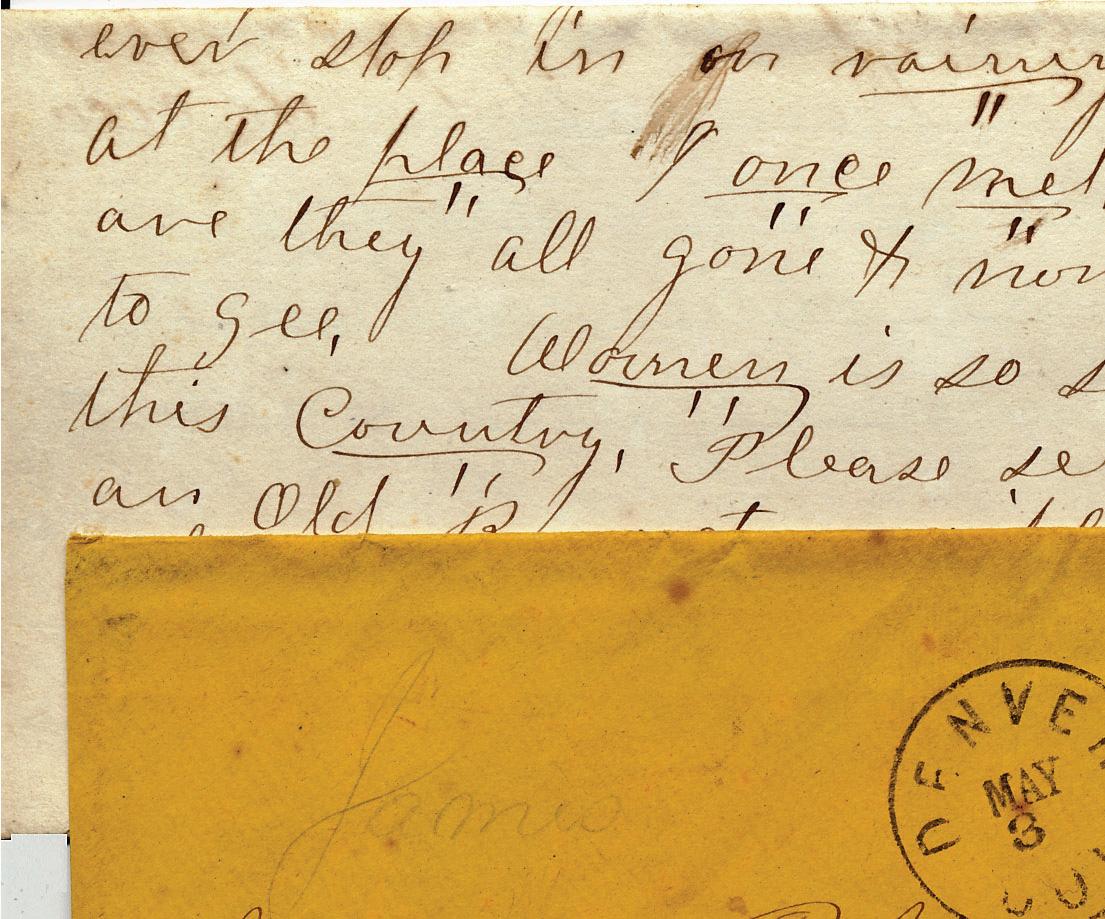 ever stop in on rainy
at the place I once met
are they all gone & non
to gee,
Women is so s
this Country, Please se
an Old
James
DENVER
MAY
3